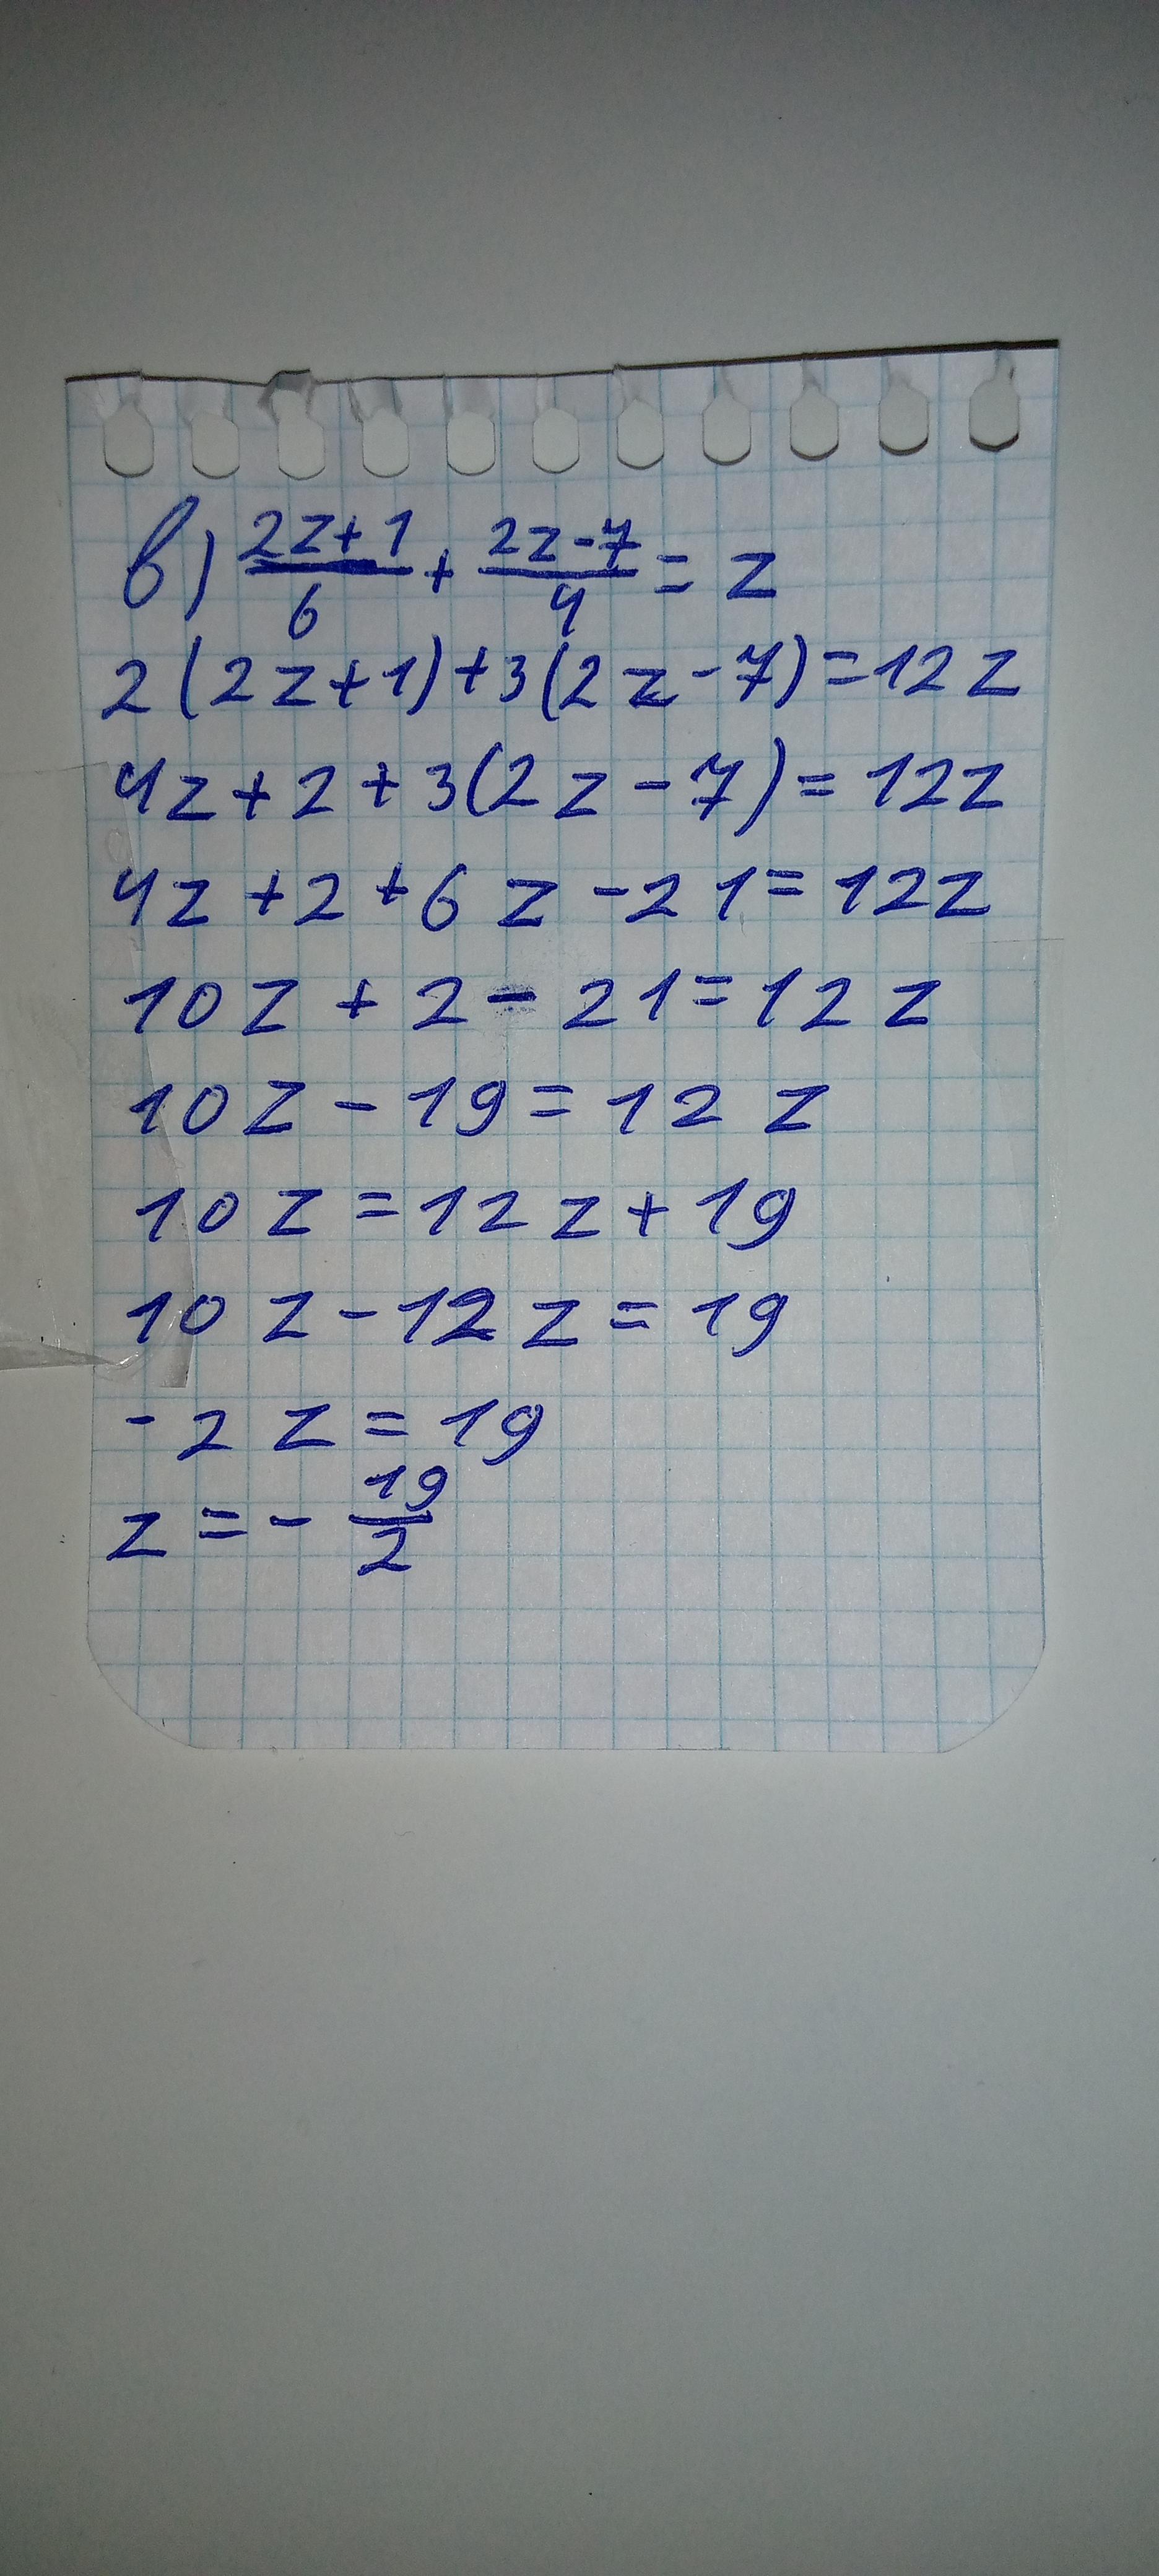 в) (2z+1)/6 + (2z-7)/4 = z
2(2z+1)+3(2z-7)=12z
4z+2+3(2z-7)=12z
4z+2+6z-21=12z
10z+2-21=12z
10z-19=12z
10z=12z+19
10z-12z=19
-2z=19
z=-19/2